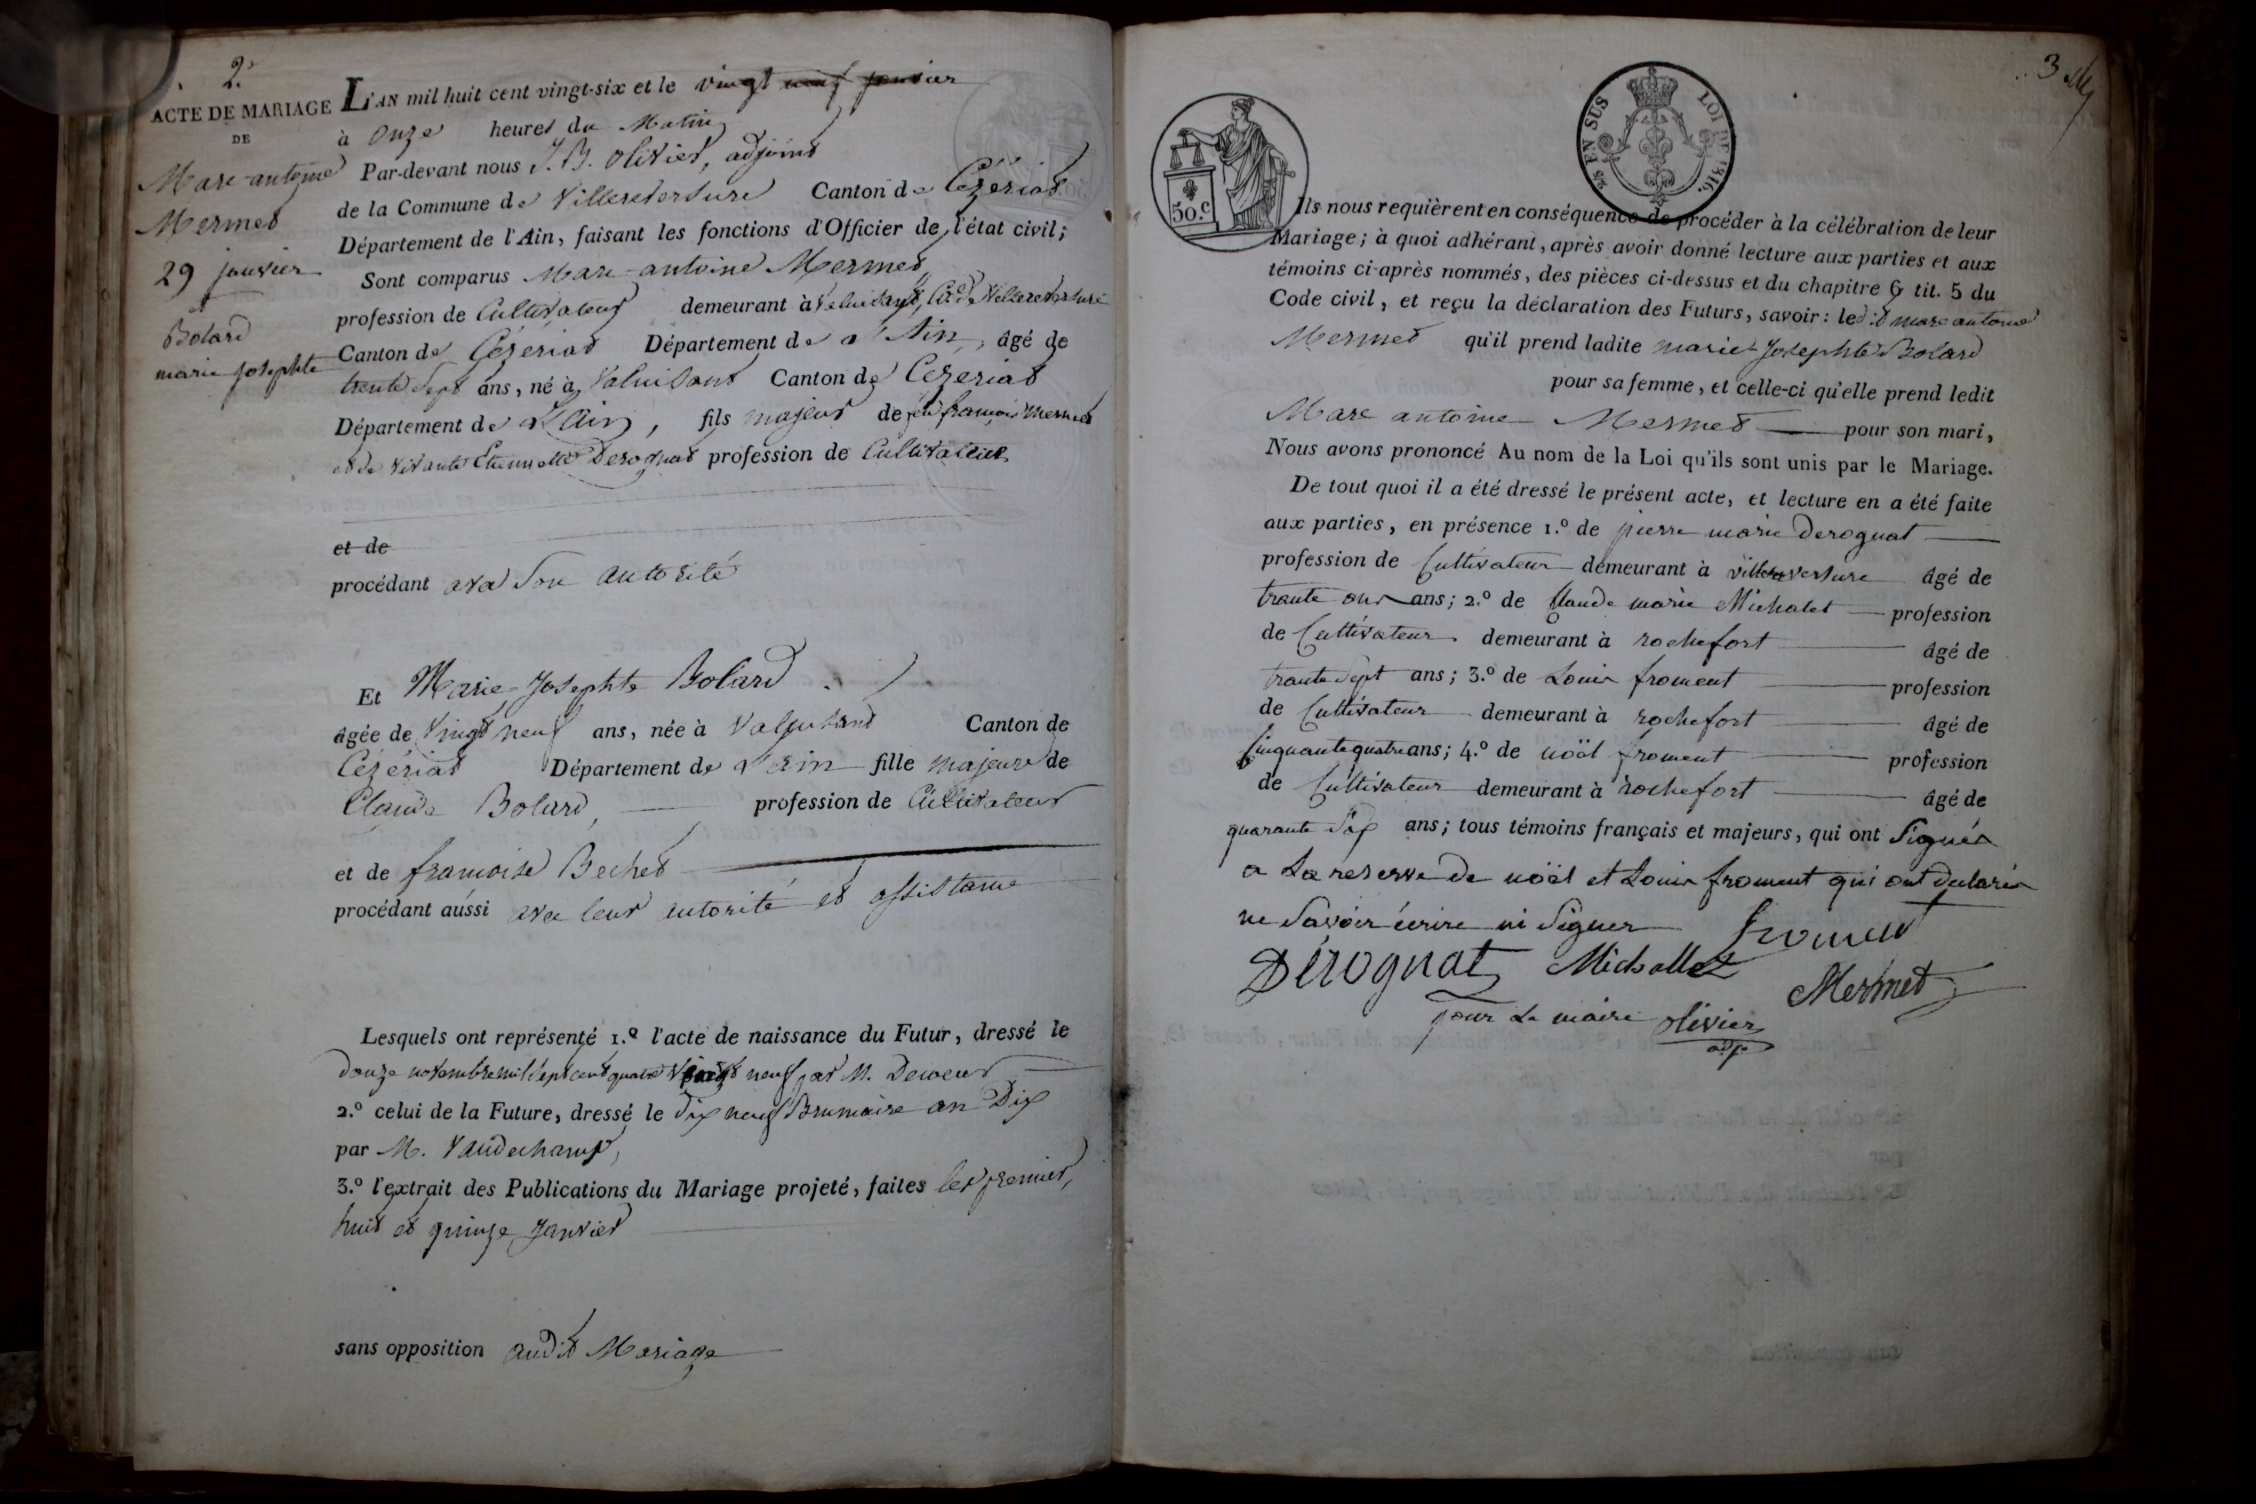 2.
ACTE DE MARIAGE
DE
Marc-antoine
Mermet
29 janvier
et
Bolard
marie josephte
L'AN mil huit cent vingt-six et le vingt neuf janvier
à Onze heures du Matin
Par-devant nous J. B. Olivier, adjoint
de la Commune de Villereversure Canton de Cézériat
Département de l'Ain, faisant les fonctions d'Officier de l'état civil;
Sont comparus Marc-antoine Mermet
profession de Cultivateur demeurant à Valuisant, Villereversure
Canton de Cézériat Département de l'Ain, âgé de
trente sept ans, né à Valuisant Canton de Cézériat
Département de l'Ain, fils majeur de feu françois mermet
et de vivante Etiennette Derognat profession de Cultivatrice
et de
procédant avec son autorité
Et Marie Josephte Bolard
âgée de Vingt neuf ans, née à Valuisant Canton de
Cézériat Département de l'ain fille majeure de
Claude Bolard, profession de Cultivateur
et de francoise Bechet
procédant aussi avec leur autorité et assistance
Lesquels ont représenté 1.º l'acte de naissance du Futur, dressé le
douze novembre mil sept cent quatre Vingt neuf par M.
2.º celui de la Future, dressé le dix neuf Brumaire an Dix
par M. Vaudechamp,
3.º l'extrait des Publications du Mariage projeté, faites les premier,
huit et quinze Janvier
sans opposition audit Mariage
3
50.c
28 EN SUS
LOI DE 1816.
Ils nous requièrent en conséquence de procéder à la célébration de leur
Mariage; à quoi adhérant, après avoir donné lecture aux parties et aux
témoins ci-après nommés, des pièces ci-dessus et du chapitre 6 tit. 5 du
Code civil, et reçu la déclaration des Futurs, savoir: ledit marc antoine
Mermet qu'il prend ladite marie Josephte Bolard
pour sa femme, et celle-ci qu'elle prend ledit
Marc antoine Mermet pour son mari,
Nous avons prononcé Au nom de la Loi qu'ils sont unis par le Mariage.
De tout quoi il a été dressé le présent acte, et lecture en a été faite
aux parties, en présence 1.º de pierre marie Derognat
profession de Cultivateur demeurant à villereversure âgé de
trante ans; 2.º de Claude marie Michalet profession
de Cultivateur demeurant à rochefort âgé de
trante sept ans; 3.º de Louis froment profession
de Cultivateur demeurant à rochefort âgé de
Cinquante quatre ans; 4.º de noël froment profession
de Cultivateur demeurant à rochefort âgé de
quarante six ans; tous témoins français et majeurs, qui ont Signés
a La reserve de noël et Louis froment qui ont declarés
ne savoir écrire ni signer
froment
Dérognat Michallet
Mermet
pour Le maire olivier
adj.